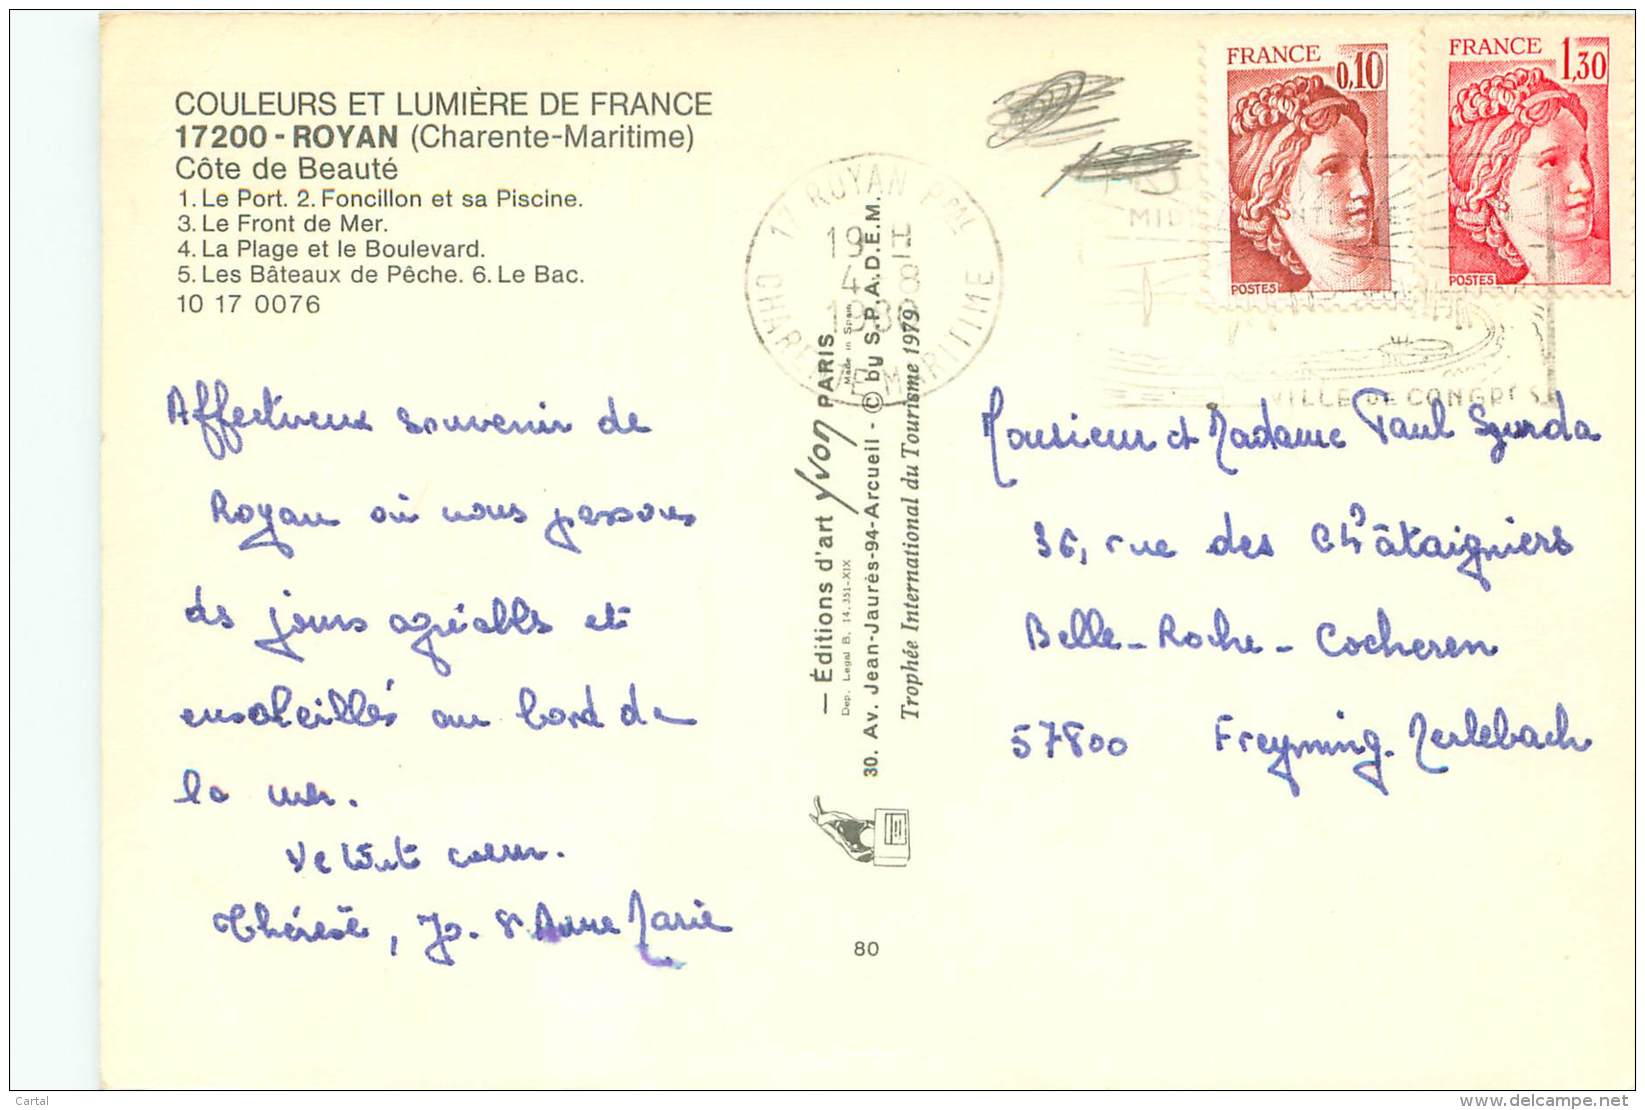 COULEURS ET LUMIÈRE DE FRANCE
17200 - ROYAN (Charente-Maritime)
Côte de Beauté
1. Le Port. 2. Foncillon et sa Piscine.
3. Le Front de Mer.
4. La Plage et le Boulevard.
5. Les Bâteaux de Pêche. 6. Le Bac.
10 17 0076
Affectueux souvenir de
Royan où nous passons
des jours agréables et
ensoleillés au bord de
la mer.
De tout cœur.
Thérèse, Jo. & Anne Marie
— Éditions d'art Yvon PARIS
Made in Spain
Dep. Legal B. 14.351-XIX
30. Av. Jean-Jaurès-94-Arcueil - © by S.P.A.D.E.M.
Trophée International du Tourisme 1979
80
17 ROYAN PPAL
19 H
4 8
CHARENTE MARITIME
FRANCE
0,10
POSTES
FRANCE
1,30
POSTES
VILLE DE CONGRES
Monsieur et Madame Paul Sgurda
36, rue des Châtaigniers
Belle-Roche - Cocheren
57800 Freyming-Merlebach
Cartal
www.delcampe.net